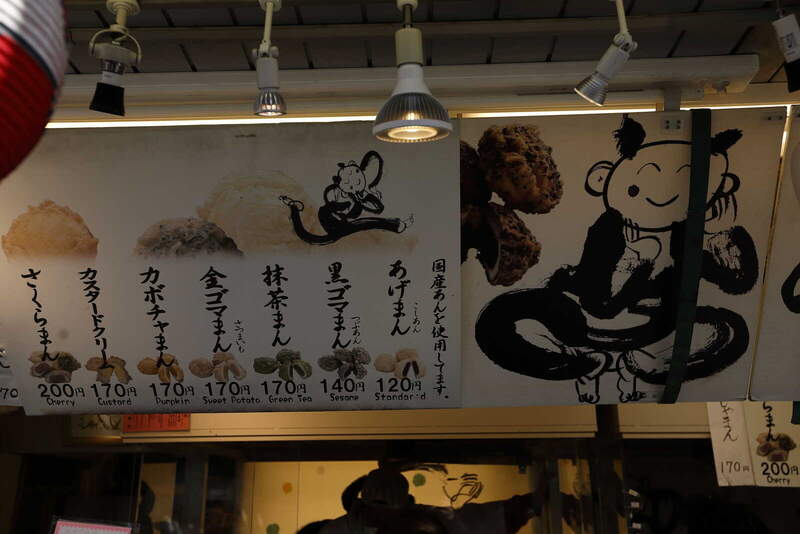 国産あんを使用してます。
あげまん
こしあん
120円
Standard
黒ゴマまん
つぶあん
140円
Sesame
抹茶まん
170円
Green Tea
金ゴマまん
さつまいも
170円
Sweet Potato
カボチャまん
170円
Pumpkin
カスタードクリーム
170円
Custard
さくらまん
200円
Cherry
170
170円
200円
Cherry